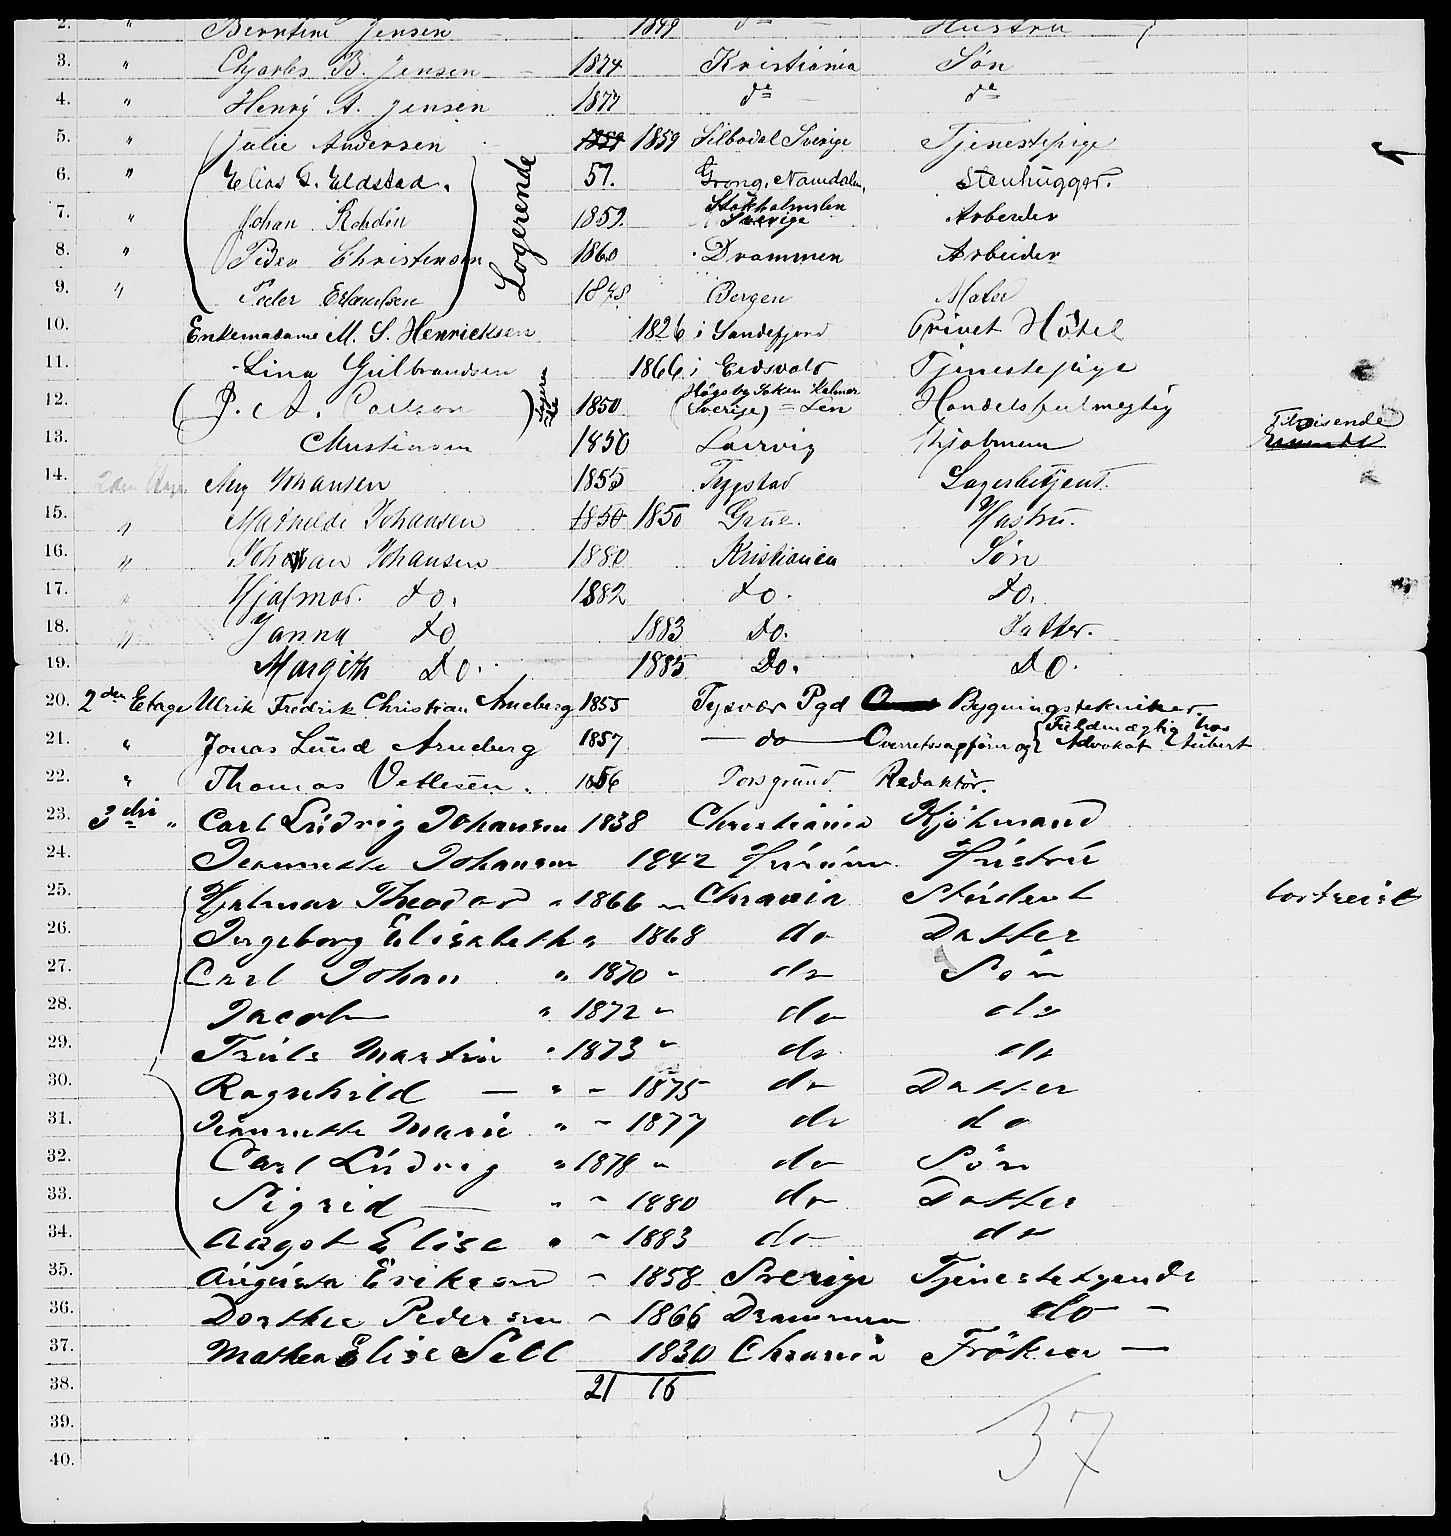 2. " Berntine Jensen 1849 do — Hustru
3. " Charles B. Jensen 1874 Kristiania Søn
4. " Henry A. Jensen 1877 do do
5. " Julie Andersen 1859 1859 Silbodal Sverige Tjenestepige
6. " Elias G. Eldstad. 57. Grong, Namdalen, Stenhugger.
7. " Johan Rohdin 1859. Stokholmslen Sverige Arbeider
8. " Peder Christensen 1860 Drammen Arbeider
9. " Peder Erlandsen 1848 Bergen Maler
Logerende
10. Enkemadame M. S. Henricksen 1826 i Sandefjord Privet Hôtel
11. Lina Gulbrandsen 1866 i Eidsvold Tjenestepige
12. J. A. Carlson Logerende 1850 Högsby Soken Kalmar (Sverige) = Län Handelsfulmegtig
13. Christensen 1850 Laurvig Kjøbmann Tilreisende
14. 2den Etage Aug Johansen 1855 Trygstad Lagerbetjent.
15. " Mathilde Johansen 1850 1850 Grue. Hustru.
16. " Johan Johansen 1880 Kristiania Søn
17. " Hjalmar. do. 1882 do. do.
18. " Janna do 1883 do. Datter.
19. Margith do. 1885 Do. DO.
20. 2den Etage Ulrik Fredrik Christian Arneberg 1855 Tysvær Pgd Bygningstekniker
21. " Jonas Lund Arneberg 1857 — do — Overretssagfører og Fuldmægtig hos Advokat Hubert
22. " Thomas Vetlesen. 1856 Porsgrund. Redaktør.
23. 3die " Carl Ludvig Johansen 1838 Christiania Kjøbmand
24. Jeannette Johansen 1842 Hustru
25. Hjalmar Theodor " 1866 " Chrania Student bortreist
26. Ingeborg Elisabeth " 1868 do Datter
27. Carl Johan " 1870 " do Søn
28. Jacob " 1872 " do do
29. Truls Martin " 1873 " do do
30. Ragnhild — " " 1875 do Datter
31. Jeannette Marie " " 1877 do do
32. Carl Ludvig " 1878 " do Søn
33. Sigrid — " " 1880 do Datter
34. Aagot Elise " " 1883 do do
35. Augusta Erikson " 1858 Sverige Tjenestetyende
36. Dorthee Pedersen " 1866 Drammen do —
37. Mathea Elise Sell 1830 Chrania Frøken —
38. 21 16
39.
40.
37